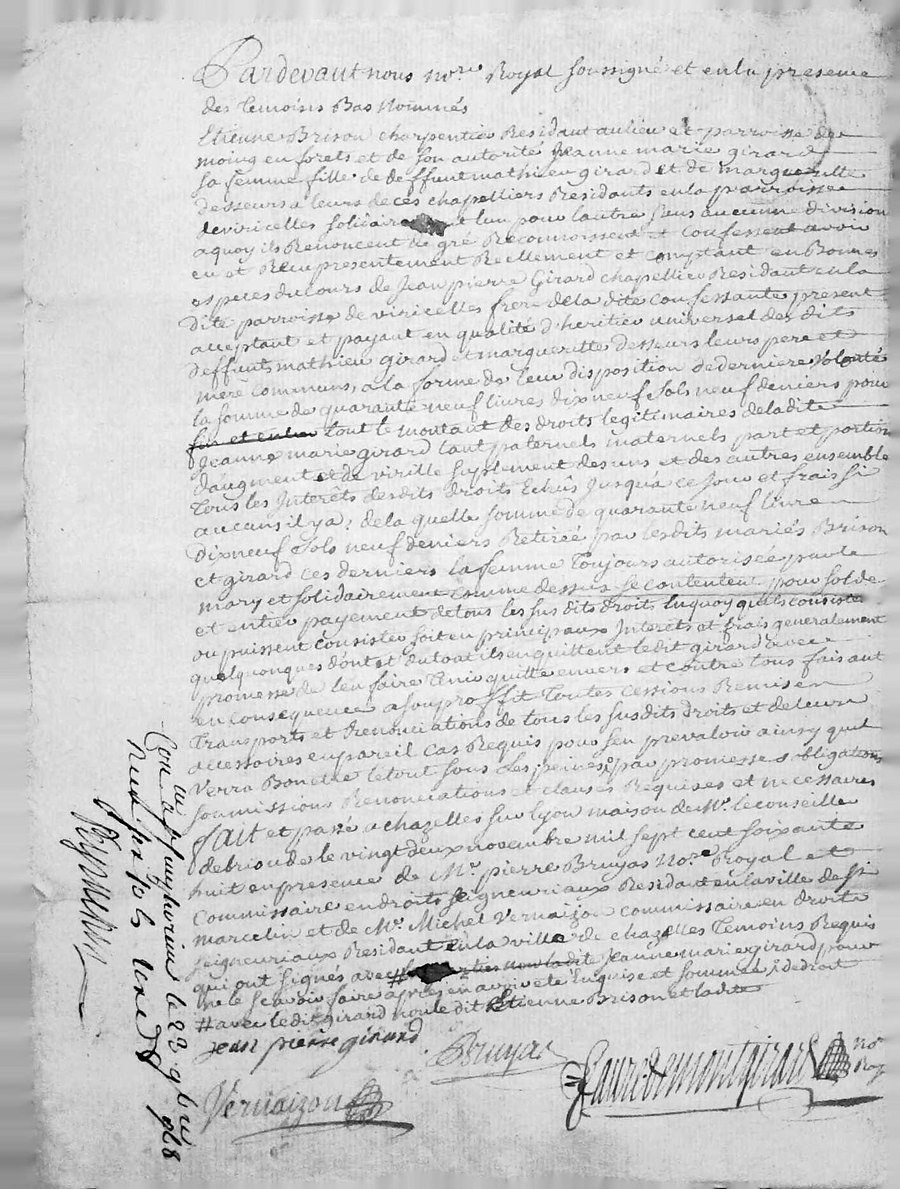 Pardevant nous no.re Royal soussigné et en la presence
des temoins Bas Nommés
Etienne Brison charpentier Residant au lieu et parroisse de
moing en forets et de son autorité Jeanne marie girard
sa femme fille de deffunt mathieu girard et de marguerite
desseurs a leurs deces chapelliers Residants en la parroisse
de viricelles solidairement l un pour lautre sans aucune division
a quoy ils Renoncent de gré Reconnoissent et confessent avoir
eu et Receu presentement Reellement et comptant en Bonnes
especes du cours de Jean pierre Girard chapellier Residant en la
dite parroisse de viricelles frere de la dite confessante present
acceptant et payant en qualité d'heritier universel des dits
deffunts mathieu girard et marguerite desseurs leurs pere et
mere communs, a la forme de leur disposition de derniere volonté
la somme de quarante neuf livres dix neuf sols neuf deniers pour
tout le montant des droits legitimaires de ladite
Jeanne marie girard tant paternels maternels part et portion
daugment et de virille suplement des uns et des autres ensemble
tous les Interets desdits droits Echûs Jusqua ce jour et frais si
aucuns il y a; de la quelle somme de quarante neuf livre
dix neuf sols neuf deniers Retirée par lesdits mariés Brison
et girard ces derniers la femme toujours autorisée par le
mary et solidairement comme dessus se contentent pour solde
et entier payement de tous les susdits droits en quoy quils consiste
ou puissent consister soit en principaux Interets et frais generalement
quelquonques dont et du tout ils en quittent ledit girard avec
promesse de l'en faire tenir quitte envers et contre tous faisant
en consequence a son proffit toutes cessions Remises
transports et Renonciations de tous les susdits droits et de leurs
accessoires en pareil cas Requis pour s'en prevaloir ainsy quil
verra Bon etre le tout sous les peines, par promesses obligations
soumissions Renonciations et clauses Requises et necessaires
fait et passé a chazelles sur lyon maison de Mr. le conseiller
debrioude le vingt deux novembre mil sept cent soixante
huit en presence de Mr. pierre Bruyas No.re Royal et
Commissaire en droits seigneuriaux Residant en la ville de st
marcelin et de Mr. Michel Vernaizon commissaire en droits
seigneuriaux Residant en la ville de chazelles temoins Requis
qui ont signés avec # Jeanne marie girard pour
ne le scavoir faire apres en avoir eté Enquise et sommée, de droit
# avec le dit girard non le dit Etienne Brison et ladite
jean pierre girard
Bruyas
Vernaizon
Faure de montgirard no.re Roy
Con.lé a St Symphorien le 22 9bre 1768